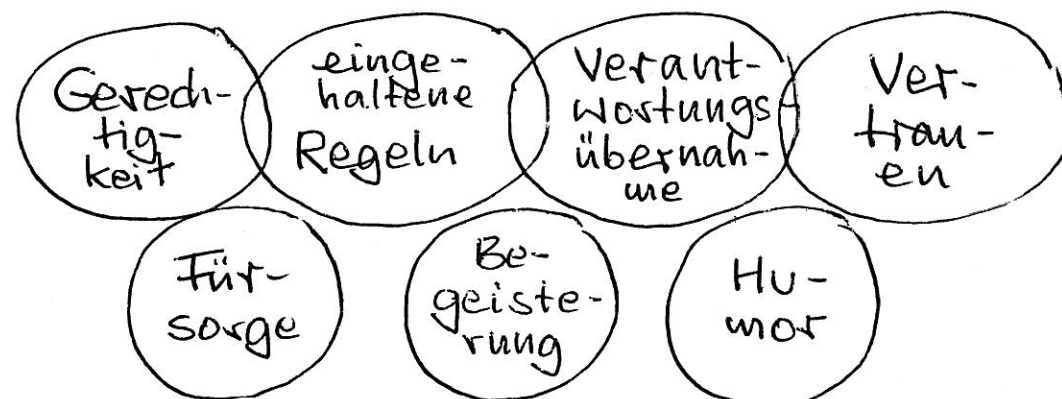 Gerech-
tig-
keit
einge-
haltene
Regeln
Verant-
wortungs-
übernah-
me
Ver-
trau-
en
Für-
sorge
Be-
geiste-
rung
Hu-
mor